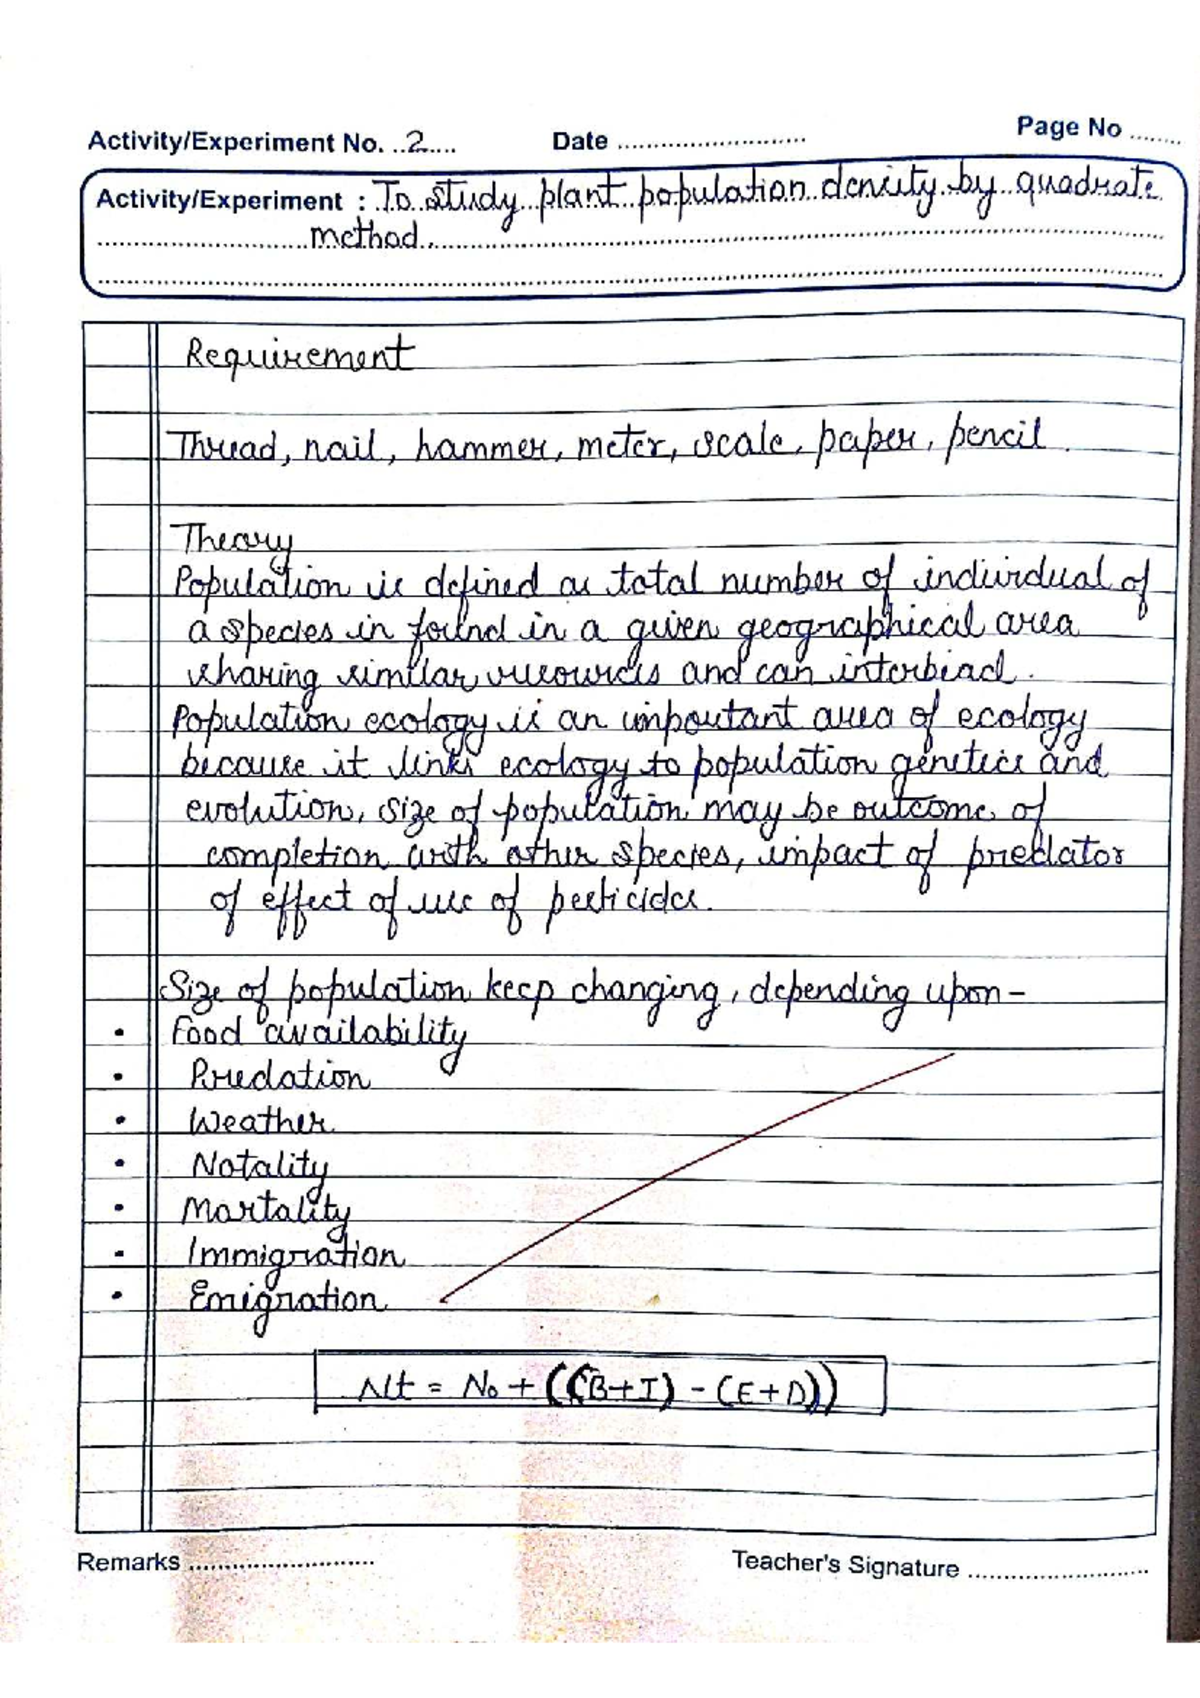 Activity/Experiment No. ..2.... Date .......................... Page No .......
Activity/Experiment : To study plant population dencity by quadrate
method.
Requirement
Thread, nail, hammer, meter, scale, paper, pencil.
Theory
Population is defined as total number of individual of
a species in found in a given geographical area
sharing similar resources and can interbread.
Population ecology is an important area of ecology
because it links ecology to population genetics and
evolution, size of population may be outcome of
completion with other species, impact of predator
of effect of use of pesticides.
Size of population keep changing, depending upon-
• Food availability
• Predation
• Weather
• Natality
• Mortality
• Immigration
• Emigration
Nt = No + ((B+I) - (E+D))
Remarks .......................... Teacher's Signature ..........................